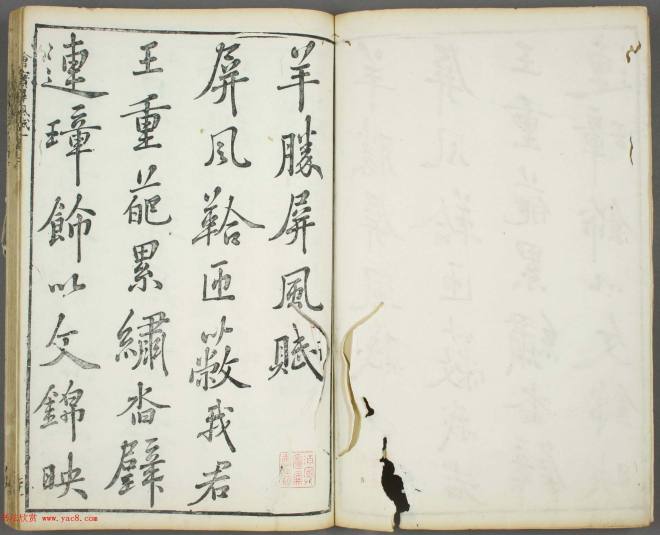 羊勝屏風賦
屏風鞈匝以蔽我君
王重葩累繡沓璧
連璋飾以文錦映
书法欣赏 www.yac8.com